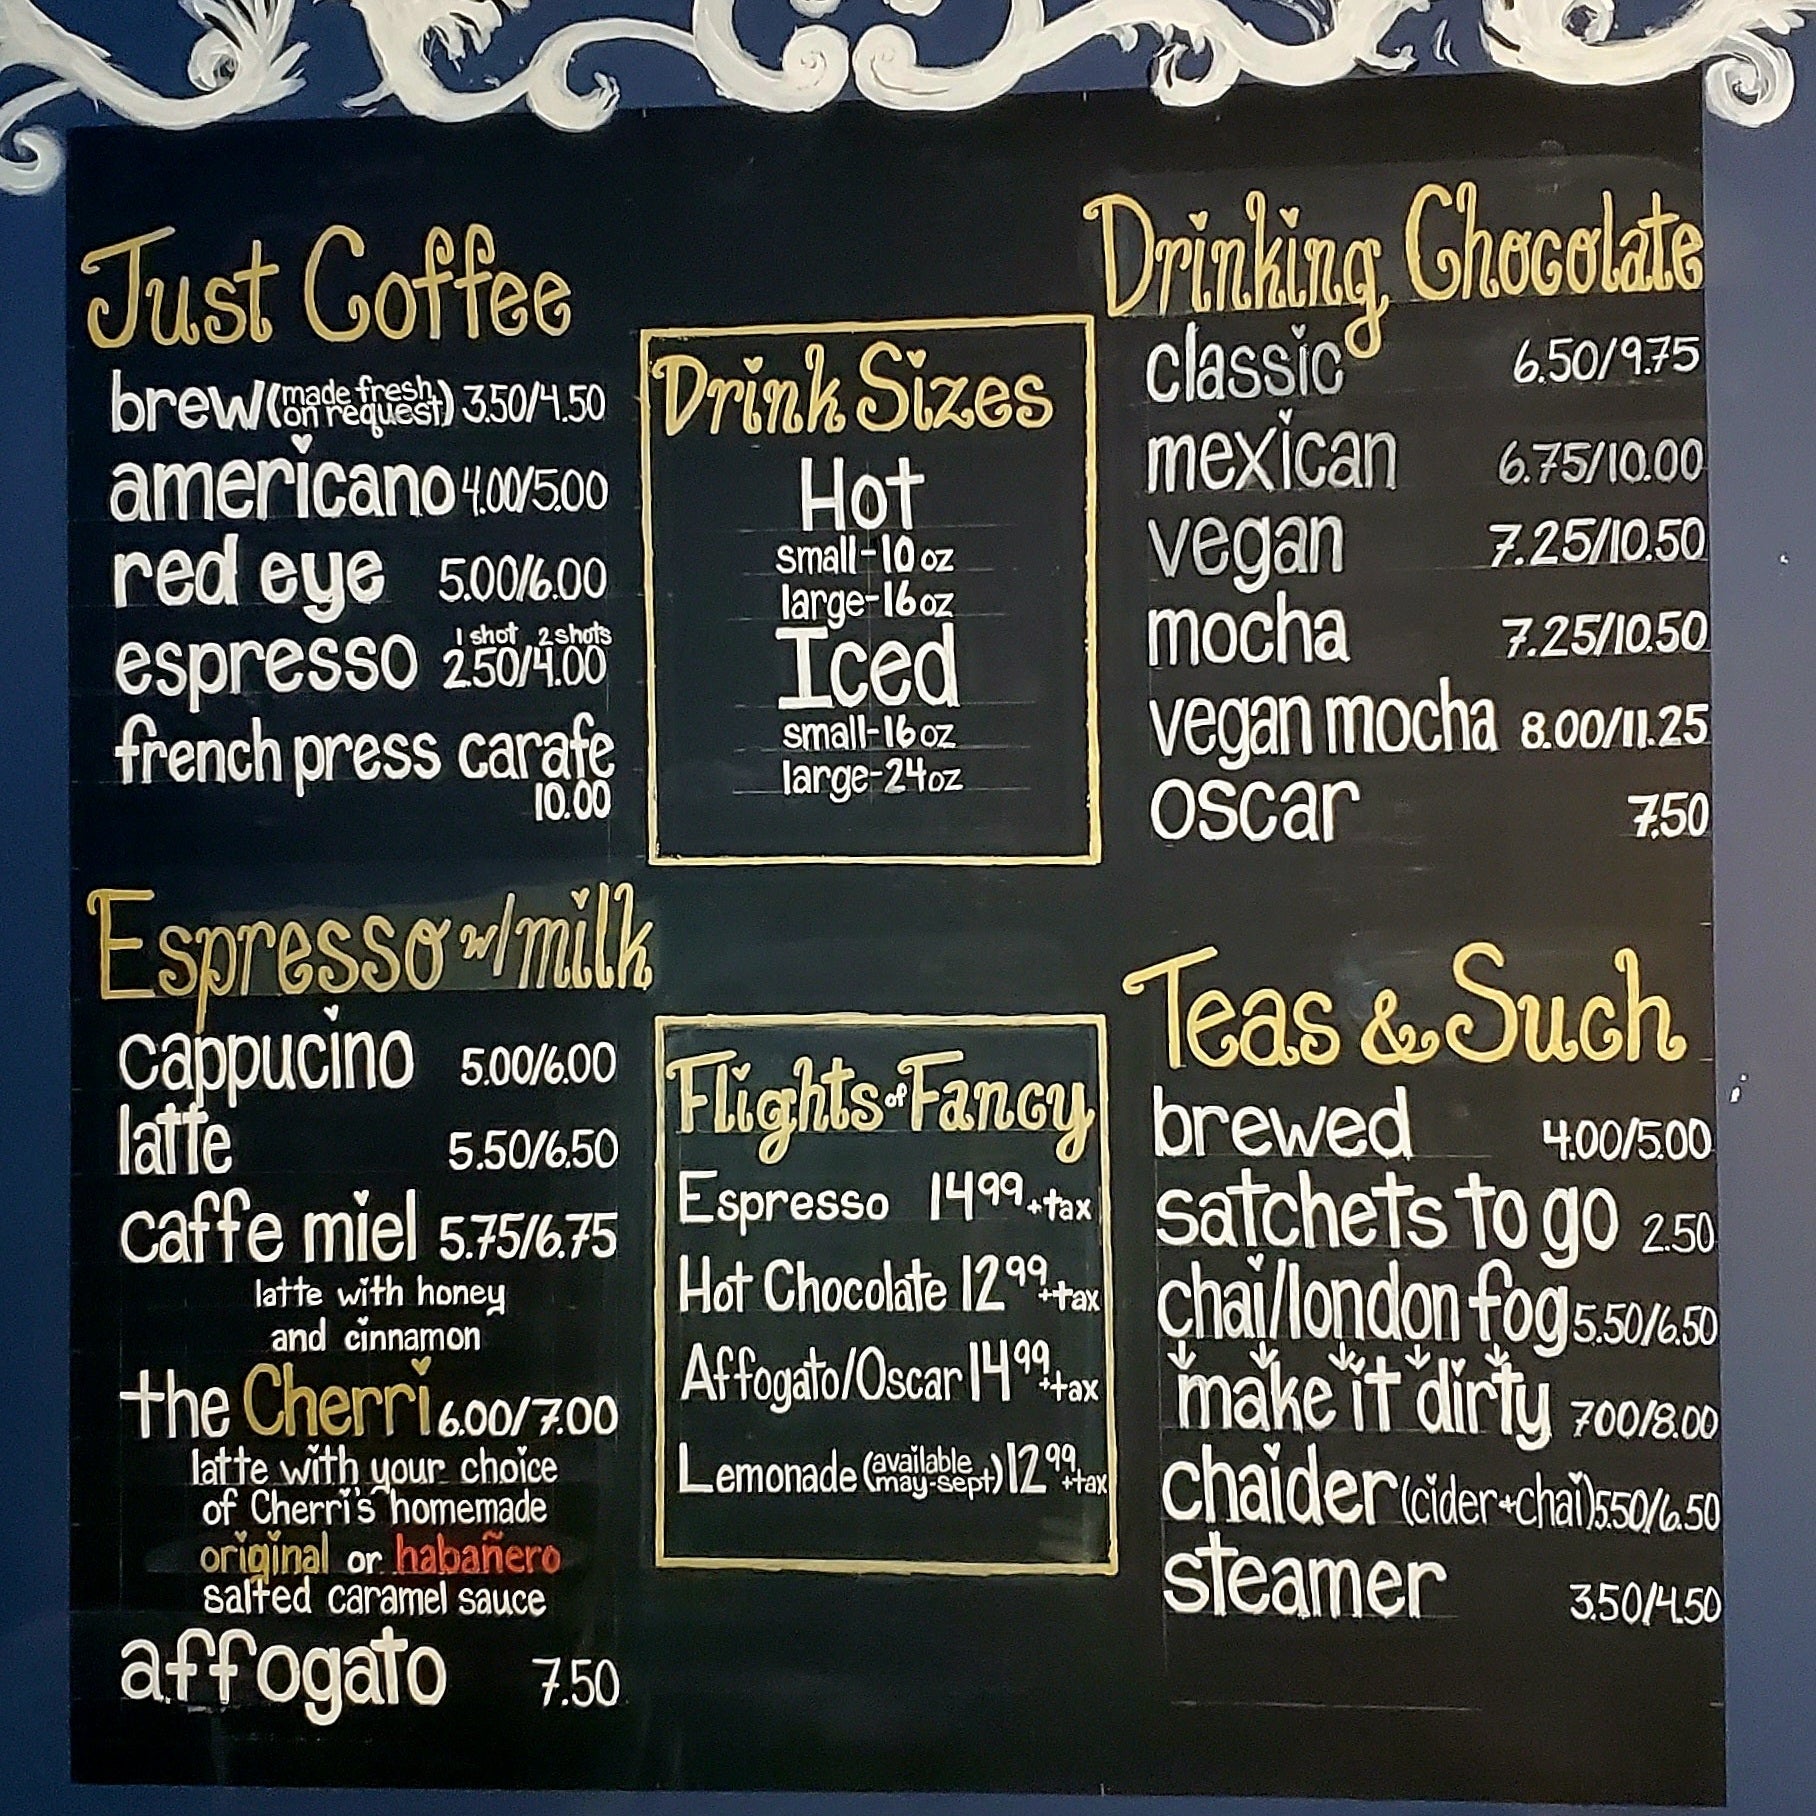 Just Coffee
brew (made fresh on request) 3.50/4.50
americano 4.00/5.00
red eye 5.00/6.00
1 shot 2 shots
espresso 2.50/4.00
french press carafe
10.00
Espresso w/milk
cappucino 5.00/6.00
latte 5.50/6.50
caffe miel 5.75/6.75
latte with honey
and cinnamon
the Cherri 6.00/7.00
latte with your choice
of Cherri's homemade
original or habañero
salted caramel sauce
affogato 7.50
Drink Sizes
Hot
small-10 oz
large-16 oz
Iced
small-16 oz
large-24 oz
Flights of Fancy
Espresso 14.99 +tax
Hot Chocolate 12.99 +tax
Affogato/Oscar 14.99 +tax
Lemonade (available may-sept) 12.99 +tax
Drinking Chocolate
classic 6.50/9.75
mexican 6.75/10.00
vegan 7.25/10.50
mocha 7.25/10.50
vegan mocha 8.00/11.25
oscar 7.50
Teas & Such
brewed 4.00/5.00
satchets to go 2.50
chai/london fog 5.50/6.50
make it dirty 7.00/8.00
chaider (cider+chai) 5.50/6.50
steamer 3.50/4.50